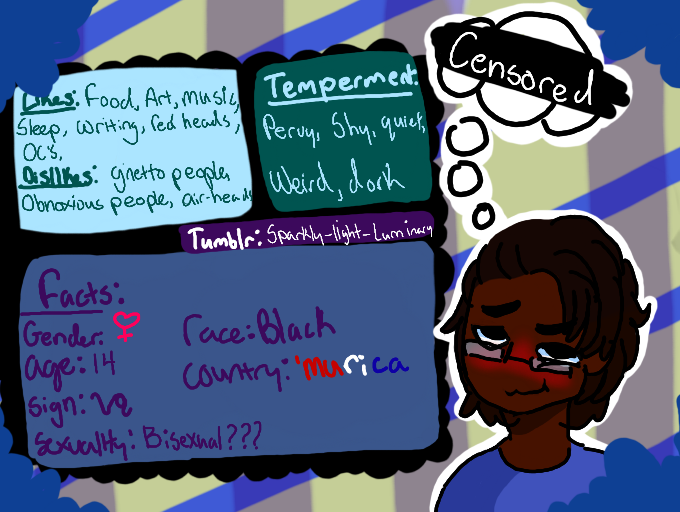 Likes: Food, Art, music,
Sleep, writing, red heads,
OC's,
Dislikes: ghetto people,
Obnoxious people, air-heads
Temperment:
Pervy, Shy, quiet,
Weird, dork
Censored
Tumblr: Sparkly-light-Luminary
Facts:
Gender: ♀
race: Black
age: 14
country: 'murica
sign: ♑
sexuality: Bisexual???